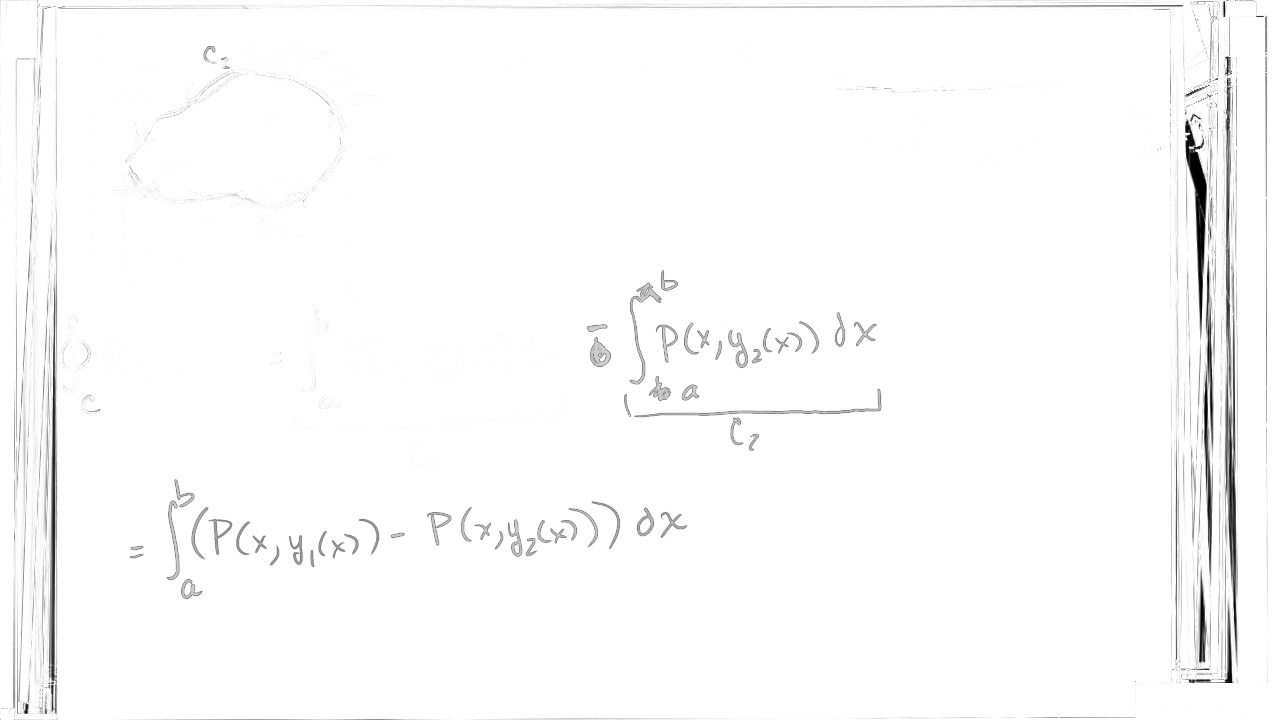 C₂
C = ∫ - ∫ₐᵇ P(x, y₂(x)) dx
C₂
= ∫ₐᵇ (P(x, y₁(x)) - P(x, y₂(x))) dx